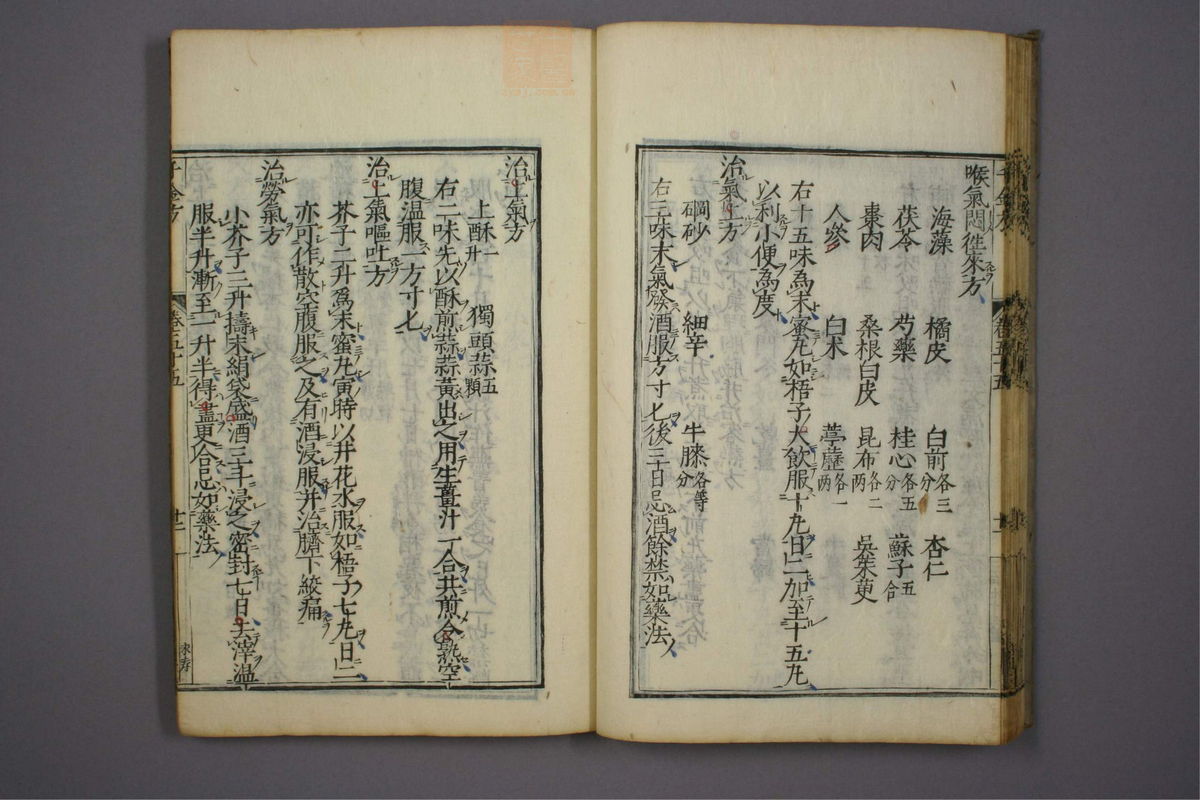 喉氣悶往來方
海藻 橘皮 白前各三分 杏仁
茯苓 芍藥 桂心各五分 蘇子五合
棗肉 桑根白皮 昆布各二两 吳茱萸
人參 白术 葶藶各一两
右十五味為末蜜丸如梧子大飲服十丸日二加至十五丸
以利小便為度
治氣上方
碙砂 細辛 牛膝各等分
右三味末氣發酒服方寸匕後三十日忌酒餘禁如藥法
治上氣方
上酥一升 獨頭蒜五顆
右二味先以酥煎蒜蒜黃出之用生薑汁一合共煎令熟空
腹温服一方寸匕
治上氣嘔吐方
芥子二升為末蜜丸寅時以井花水服如梧子七丸日二
亦可作散空腹服之及有酒浸服并治臍下絞痛
治勞氣方
小芥子二升擣末絹袋盛酒三斗浸之密封七日去滓温
服半升漸至一升半得盡更合忌如藥法
千金方 卷五十五